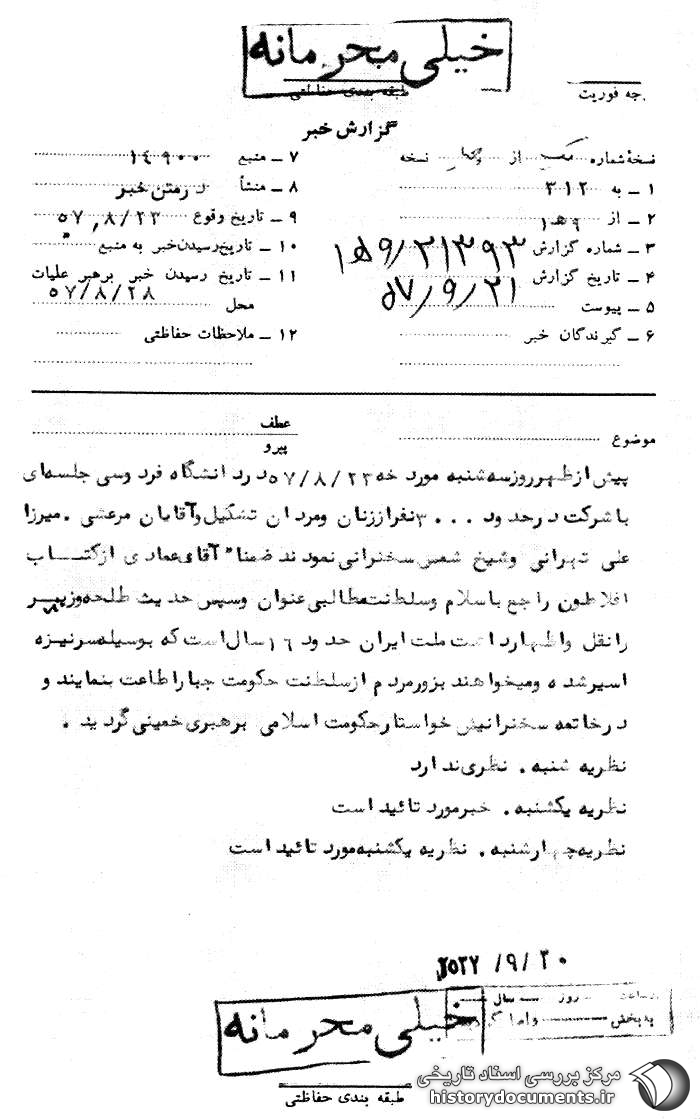 خیلی محرمانه
طبقه بندی حفاظتی
جه فوریت
گزارش خبر
نسخهٔ شماره از نسخه
۱ ـ به ۳۱۲
۲ ـ از ۱ﻫ۹
۳ ـ شماره گزارش ۱ﻫ۹/۲۱۳۹۳
۴ ـ تاریخ گزارش ۵۷/۹/۲۱
۵ ـ پیوست
۶ ـ گیرندگان خبر
۷ ـ منبع ۱۴۹۰۰
۸ ـ منشأ درمتن خبر
۹ ـ تاریخ وقوع ۵۷/۸/۲۳
۱۰ ـ تاریخ رسیدن خبر به منبع
۱۱ ـ تاریخ رسیدن خبر برهبر علیات
محل ۵۷/۸/۲۸
۱۲ ـ ملاحظات حفاظتی
موضوع
عطف
پیرو
پیش از ظهر روز سه شنبه مورد خه ۵۷/۸/۲۳ در دانشگاه فردوسی جلسه ای
با شرکت در حدود ۳۰۰۰ نفر از زنان و مردان تشکیل و آقایان مرعشی . میرزا
علی تهرانی و شیخ شمس سخنرانی نمودند ضمنا" آقای عمادی از کتــاب
افلاطون راجع باسلام و سلطنت مطالبی عنوان و سپس حدیث طلحه و زبیــر
را نقل و اظهار داشت ملت ایران حدود ۱۶ سال است که بوسیله سرنیزه
اسیر شده و میخواهند بزور مردم از سلطنت حکومت جبار اطاعت بنمایند و
در خاتمه سخنرانیش خواستار حکومت اسلامی برهبری خمینی گردید .
نظریه شنبه . نظری ندارد
نظریه یکشنبه . خبر مورد تائید است
نظریه چهارشنبه . نظریه یکشنبه مورد تائید است
۲۵۳۷/۹/۲۰
ساعت روز سال
به بخش
خیلی محرمانه
طبقه بندی حفاظتی
مرکز بررسی اسناد تاریخی
historydocuments.ir